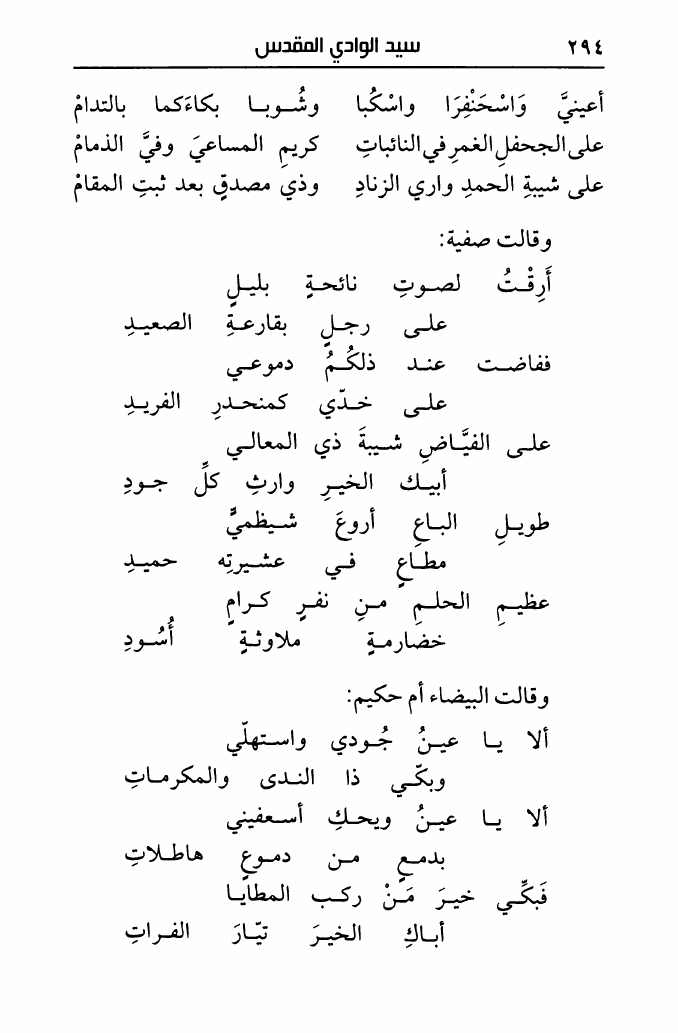 ٢٩٤ سيد الوادي المقدس
أعينيَّ وَاسْحَنْفِرَا واسْكُبا وشُوبا بكاءَكما بالتدامْ
على الجحفلِ الغمرِ في النائباتِ كريمِ المساعيَ وفيَّ الذمامْ
على شيبةِ الحمدِ واري الزنادِ وذي مصدقٍ بعد ثبتِ المقامْ
وقالت صفية:
أَرِقْتُ لصوتِ نائحةٍ بليلٍ
على رجلٍ بقارعةِ الصعيدِ
ففاضت عند ذلكُمُ دموعي
على خدّي كمنحدرِ الفريدِ
على الفيَّاضِ شيبةَ ذي المعالي
أبيك الخيرِ وارثِ كلِّ جودِ
طويلِ الباعِ أروعَ شيظميٍّ
مطاعٍ في عشيرتِه حميدِ
عظيمِ الحلمِ منِ نفرٍ كرامٍ
خضارمةٍ ملاوثةٍ أُسُودِ
وقالت البيضاء أم حكيم:
ألا يا عينُ جُودي واستهلّي
وبكّي ذا الندى والمكرماتِ
ألا يا عينُ ويحكِ أسعفيني
بدمعٍ من دموعٍ هاطلاتِ
فَبكِّي خيرَ مَنْ ركب المطايا
أباكِ الخيرَ تيّارَ الفراتِ